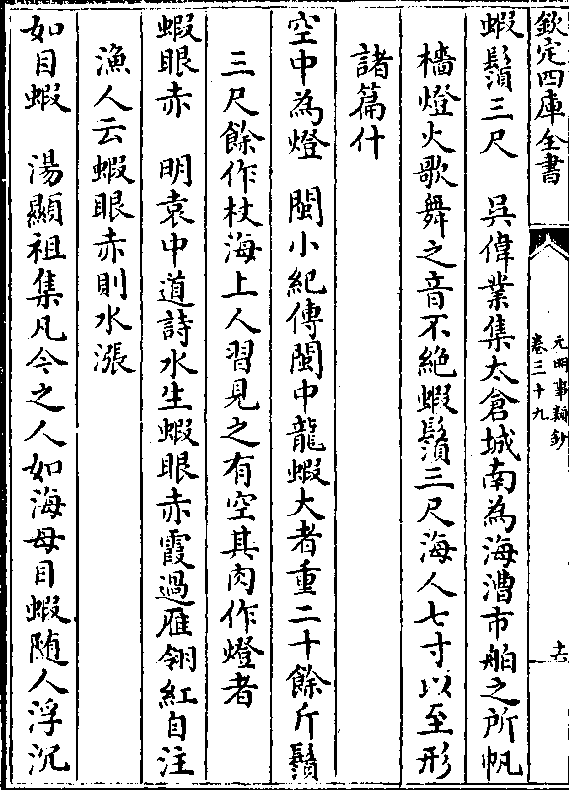 欽定四庫全書
元明事類鈔
卷三十九
蝦鬚三尺　吳偉業集太倉城南為海漕市舶之所帆
檣燈火歌舞之音不絶蝦鬚三尺海人七寸以至形
諸篇什
空中為燈　閩小紀傳閩中龍蝦大者重二十餘斤鬚
三尺餘作杖海上人習見之有空其肉作燈者
蝦眼赤　明袁中道詩水生蝦眼赤霞過雁翎紅自注
漁人云蝦眼赤則水漲
如目蝦　湯顯祖集凡今之人如海母目蝦随人浮沉